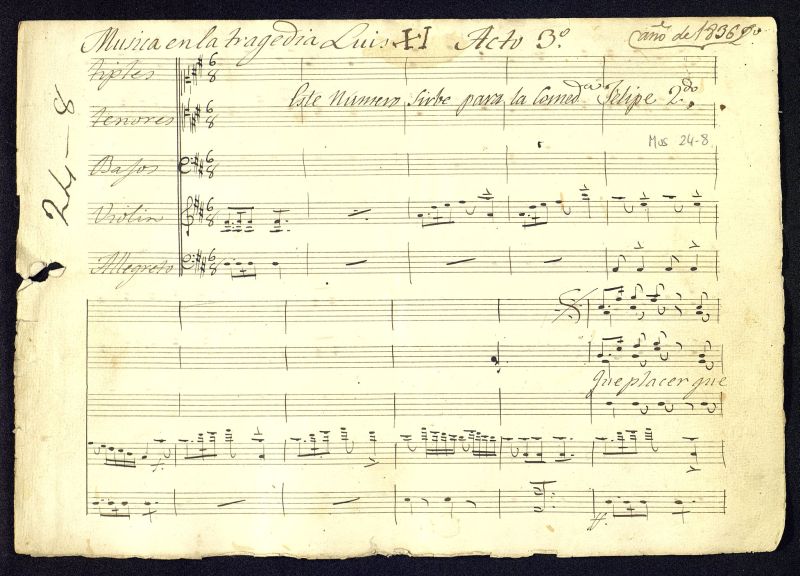 Musica en la tragedia Luis XI Acto 3º
año de 1836
tiples
Este Numero Sirbe para la Comedª Felipe 2do
tenores
Mus 24-8
24-8
Bajos
Violin
Allegreto
Que placer que